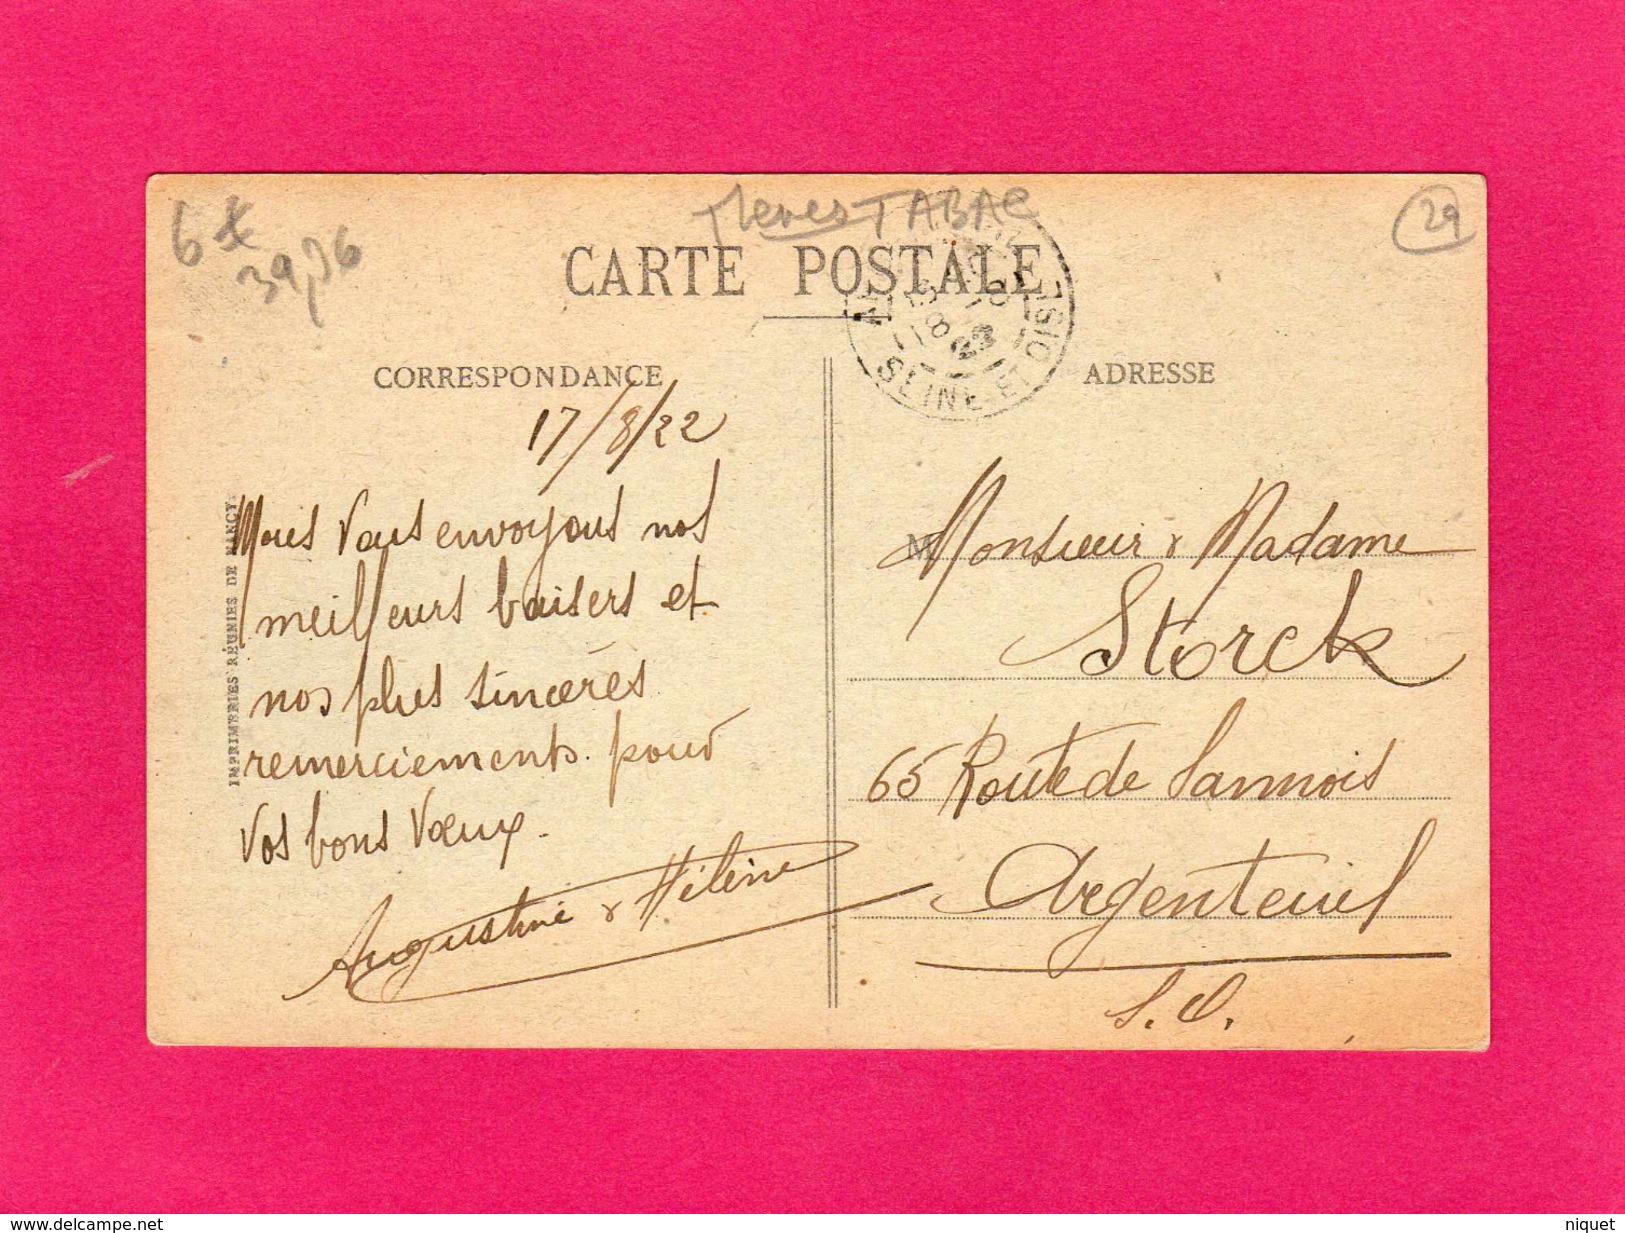 6
TABAC
29
CARTE POSTALE
CORRESPONDANCE
ADRESSE
SEINE-ET-OISE
17/8/22
Nous Vous envoyons nos
meilleurs baisers et
nos plus sincères
remerciements pour
Vos bons Vœux.
Augustine & Hélène
IMPRIMERIES RÉUNIES DE NANCY
M
Monsieur & Madame
Storck
65 Route de Sannois
Argenteuil
S. O.
www.delcampe.net
niquet